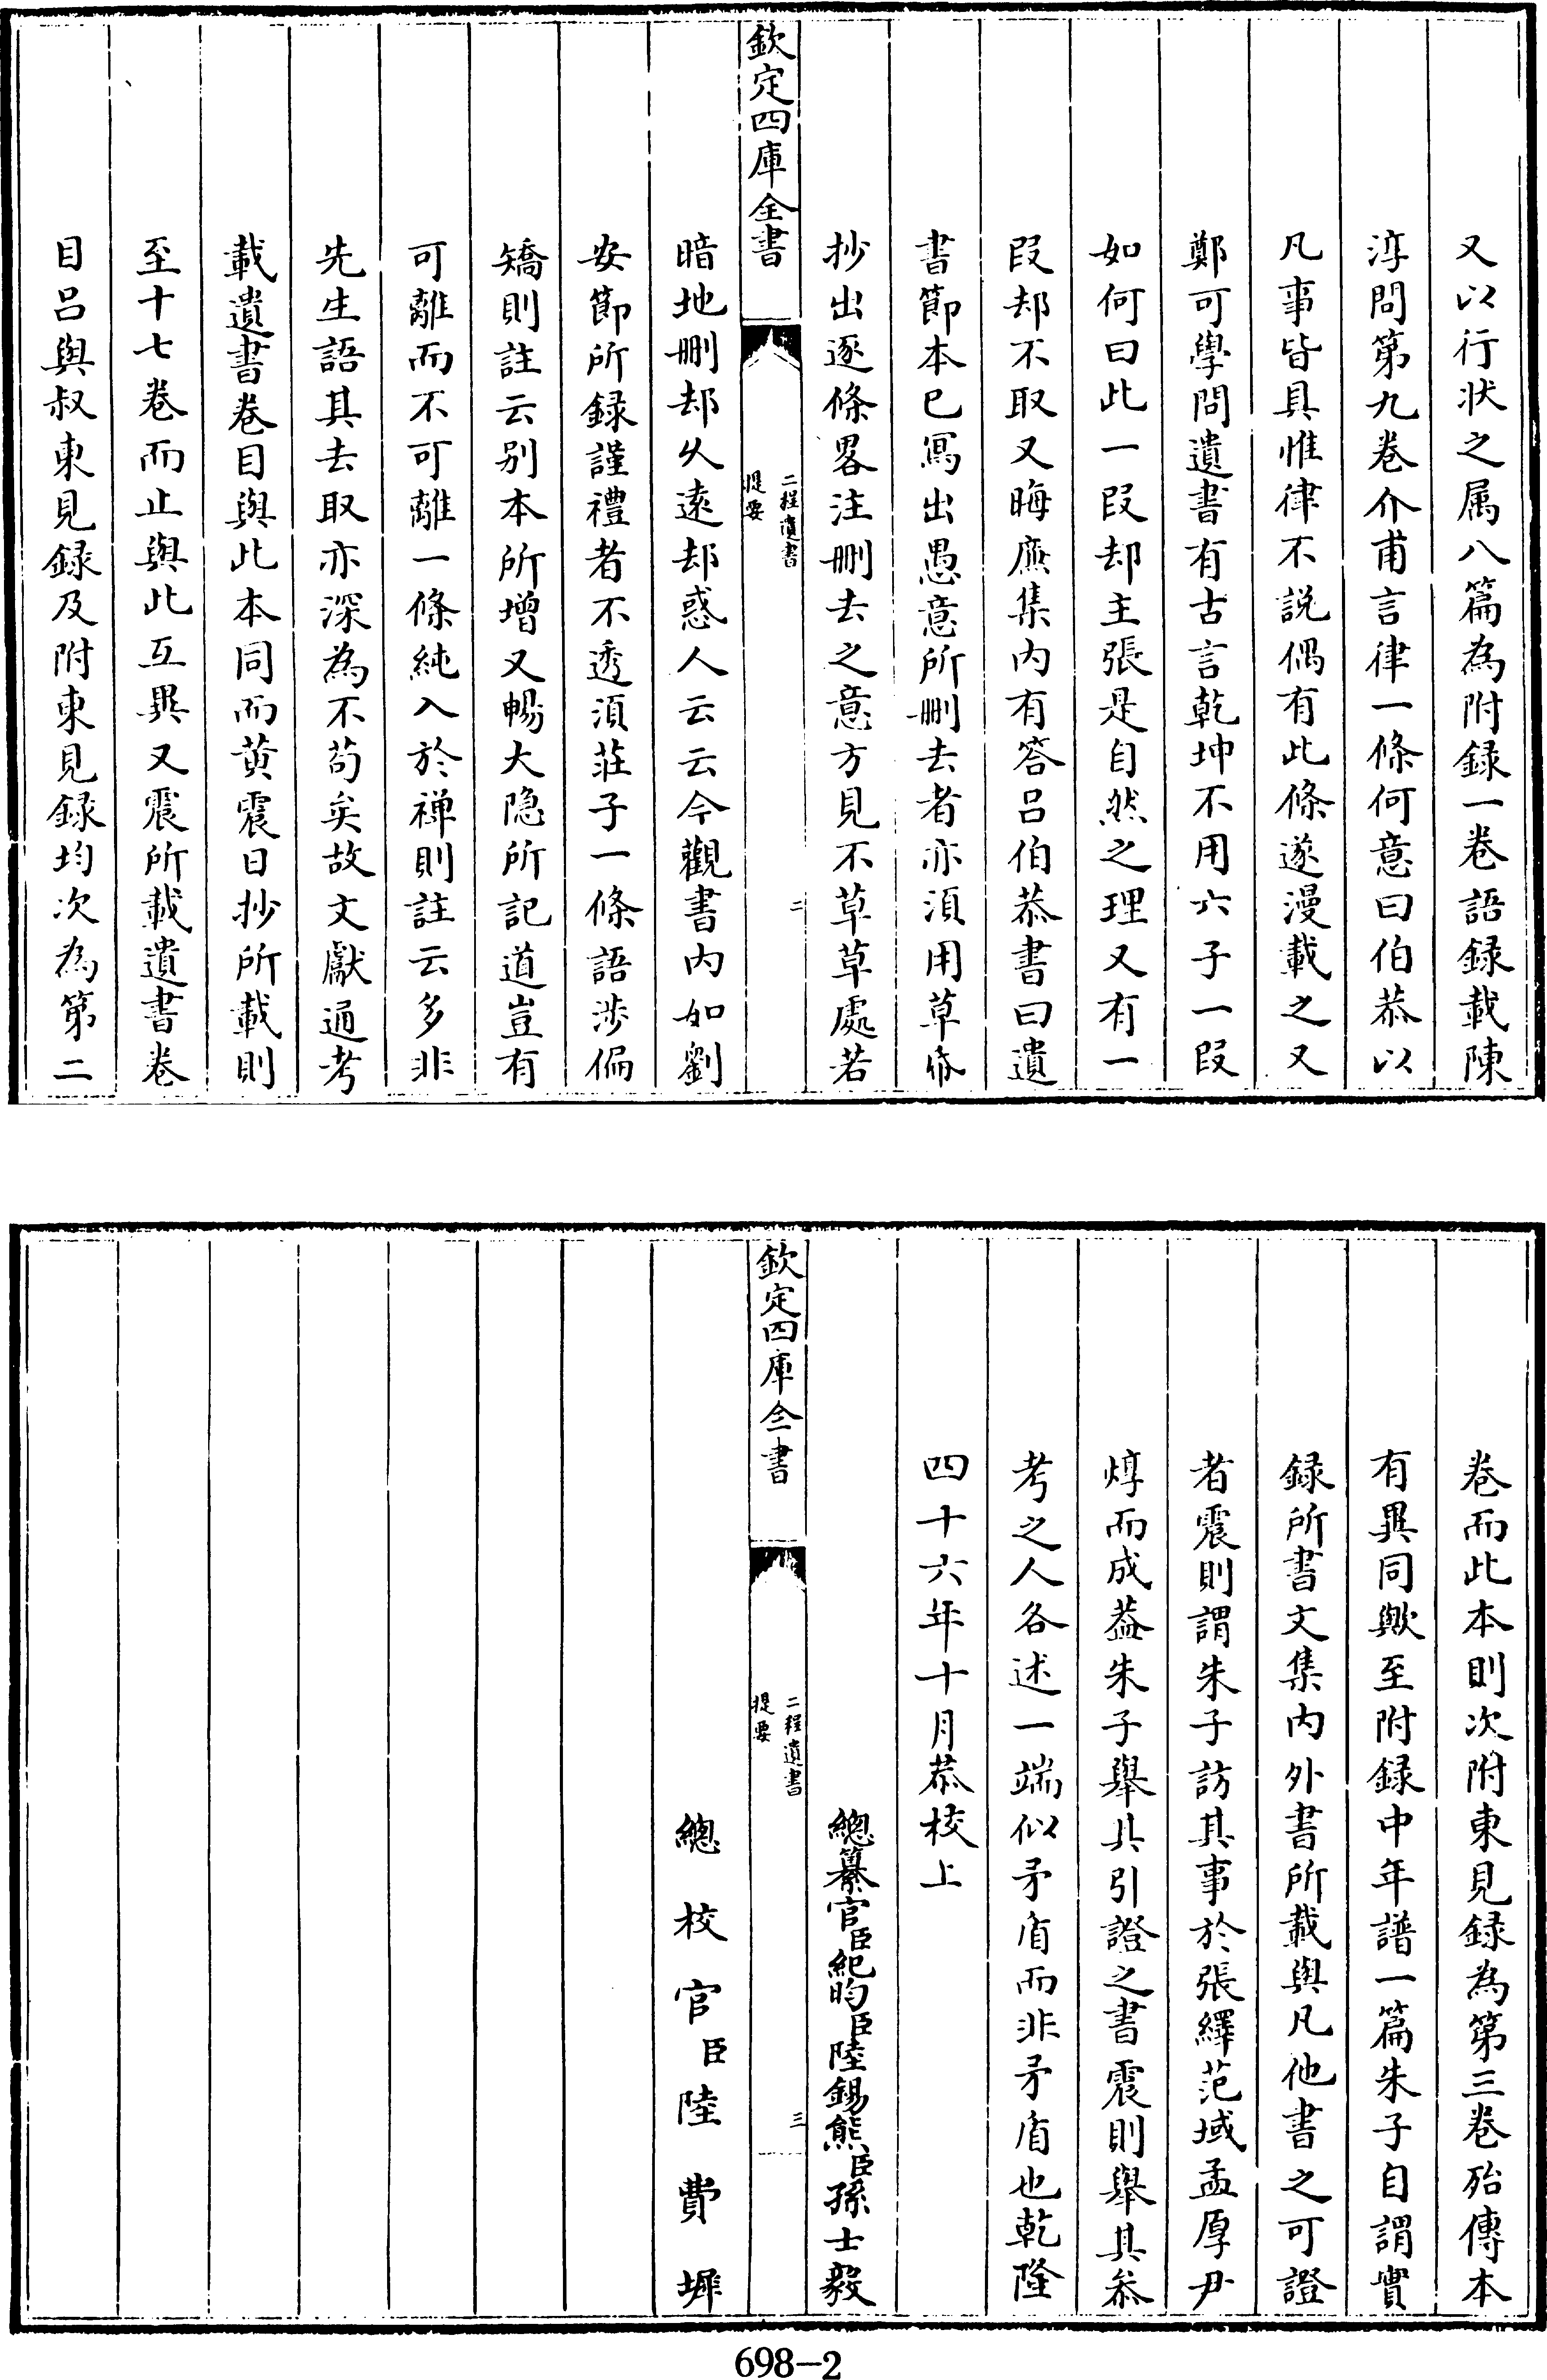 又以行狀之属八篇為附録一卷語録載陳
淳問第九卷介甫言律一條何意曰伯恭以
凡事皆具惟律不説偶有此條遂漫載之又
鄭可學問遺書有古言乾坤不用六子一叚
如何曰此一叚却主張是自然之理又有一
叚却不取又晦庵集内有答吕伯恭書曰遺
書節本已寫出愚意所刪去者亦須用草紙
抄出逐條畧注刪去之意方見不草草處若
欽定四庫全書
二程遺書
提要
二
暗地刪却久遠却惑人云云今觀書内如劉
安節所録謹禮者不透須莊子一條語渉偏
矯則註云别本所增又暢大隐所記道豈有
可離而不可離一條純入於禅則註云多非
先生語其去取亦深為不苟矣故文獻通考
載遺書卷目與此本同而黄震日抄所載則
至十七卷而止與此互異又震所載遺書卷
目吕與叔東見録及附東見録均次為第二
卷而此本則次附東見録為第三卷殆傳本
有異同歟至附録中年譜一篇朱子自謂實
録所書文集内外書所載與凡他書之可證
者震則謂朱子訪其事於張繹范域孟厚尹
焞而成葢朱子舉其引證之書震則舉其叅
考之人各述一端似矛盾而非矛盾也乾隆
四十六年十月恭校上
總纂官臣紀昀臣陸錫熊臣孫士毅
欽定四庫全書
二程遺書
提要
三
總校官臣陸費墀
698-2